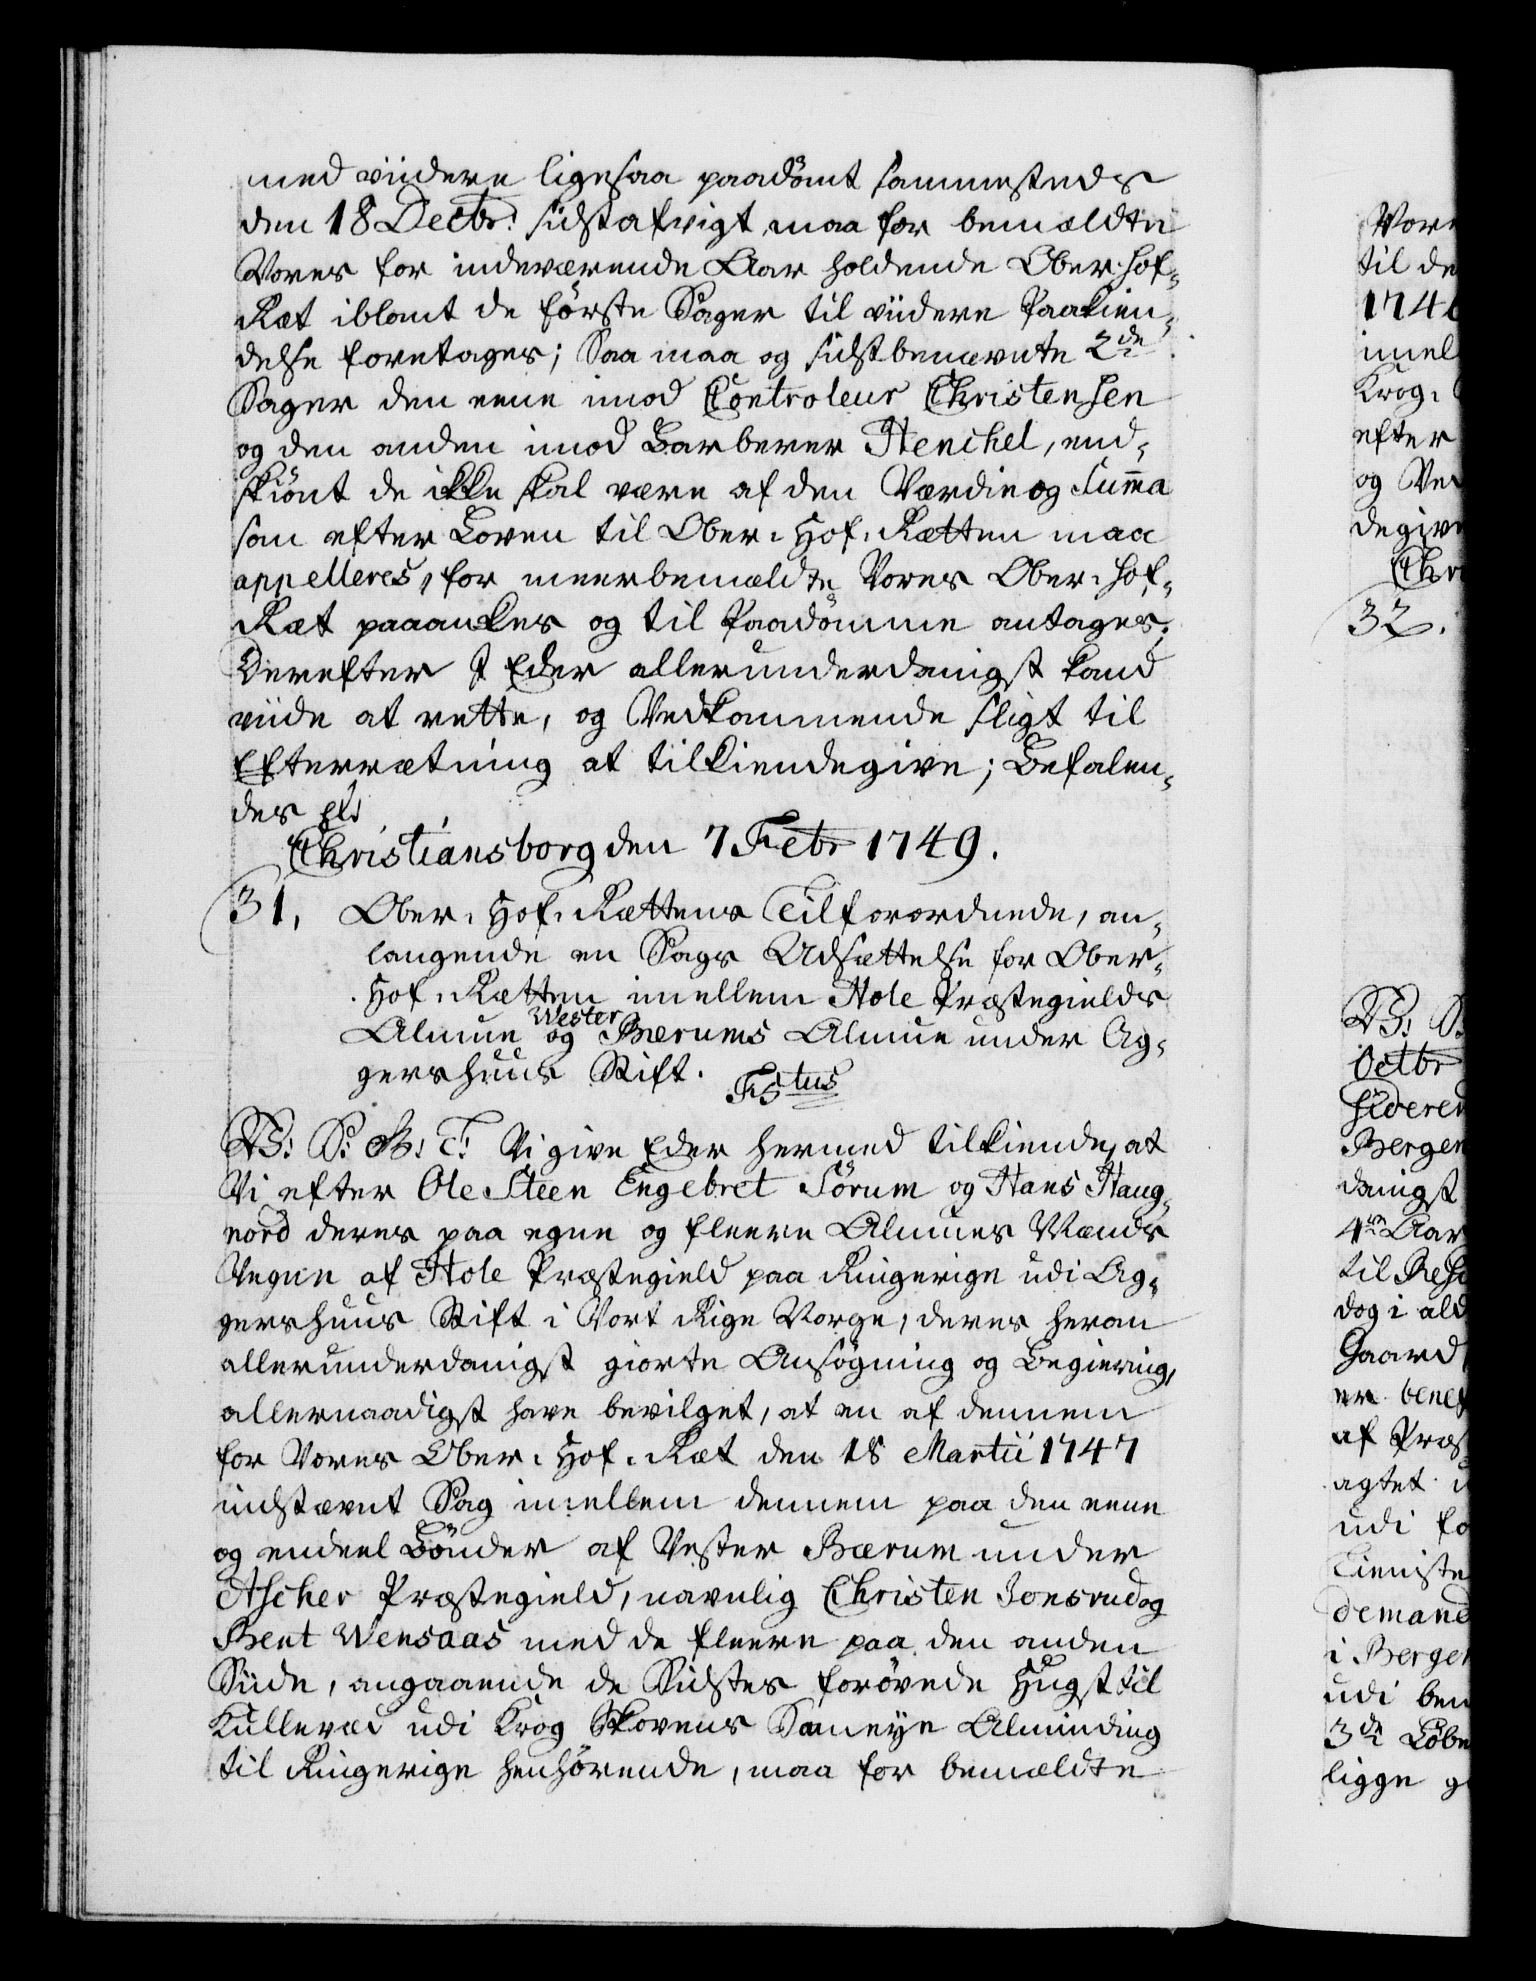 med viidere ligesaa paadömt sammesteds
den 18 Decbr: sidstafvigt, maa for bemældte
Vores for indeværende Aar holdende Ober-Hof-
Ræt iblant de förste Sager til viidere Paakien-
delse foretages; Saa maa og sidstbenævnte 2de
Sager den eene imod Controleur Christensen
og den anden imod Barberer Henchel, end-
skiönt de ikke skal være af den Værdie og Sum̅a
som efter Loven til Ober-Hof-Rætten maa
appelleres, for meerbemældte Vores Ober-Hof-
Ræt paaankes og til Paadömme antages;
Derefter I Eder allerunderdanigst kand
viide at rette, og Vedkommende sligt til
Efterrætning at tilkiendegive; Befalen-
des etc
Christiansborg den 7 Febr 1749.
31. Ober-Hof-Rættens Tilforordnede, an-
langende en Sags Udsættelse for Ober-
Hof-Rætten imellem Hole Præstegields
Almue og Wester Bærums Almue under Ag-
gershuus Stift.
F5tus
V: S: G: T: Vi give Eder hermed tilkiende, at
Vi efter Ole Steen Engebret Sörum og Hans Haug-
nord deres paa egne og fleere Almues Mænds
Vegne af Hole Præstegield paa Ringerige udi Ag-
gershuus Stift i Vort Rige Norge, deres herom
allerunderdanigst giorte Ansögning og Begiering,
allernaadigst have bevilget, at en af dennem
for Vores Ober-Hof-Ræt den 18 Martii 1747
indstævnt Sag imellem dennem paa den eene
og endeel Bönder af Vester Bærum under
Ascher Præstegield, navnlig Christen Jonsrud og
Bent Wensaas med de fleere paa den anden
Siide, angaaende de Sidstes forövede Hugst til
Kulleved udi Krog Skovens Sameye Alminding
til Ringerige henhörende, maa for bemældte
til de
efter
og Ved
32.
Octbr
Bergen
danigst
4re Aar
dog i ald
Gaard
agtet
udi fo
demand
i Bergen
udi ben
3de Löbe
ligge g